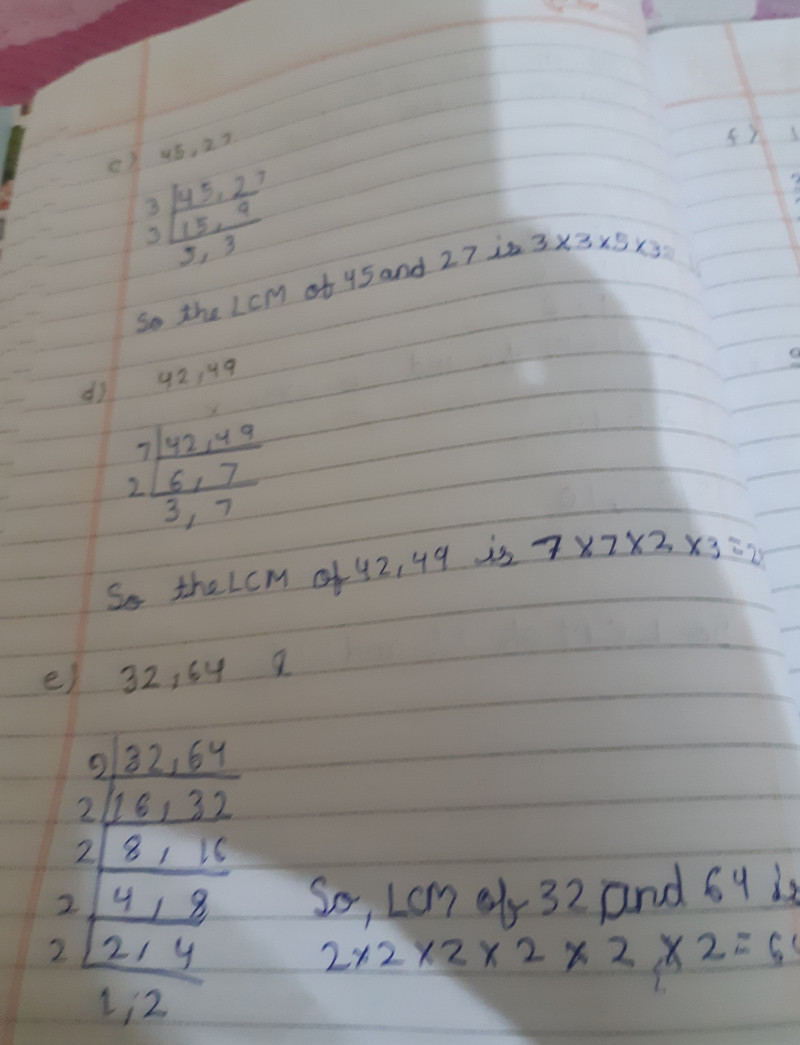 c) 45,27
3 45, 27
3 15, 9
5, 3
So the LCM of 45 and 27 is 3×3×5×3=
d) 42,49
7 42,49
2 6, 7
3, 7
So the LCM of 42,49 is 7×7×2×3=2
e) 32,64
2 32,64
2 16, 32
2 8, 16
2 4, 8
2 2, 4
1, 2
So, LCM of 32 and 64 is
2×2×2×2×2×2=6
f)